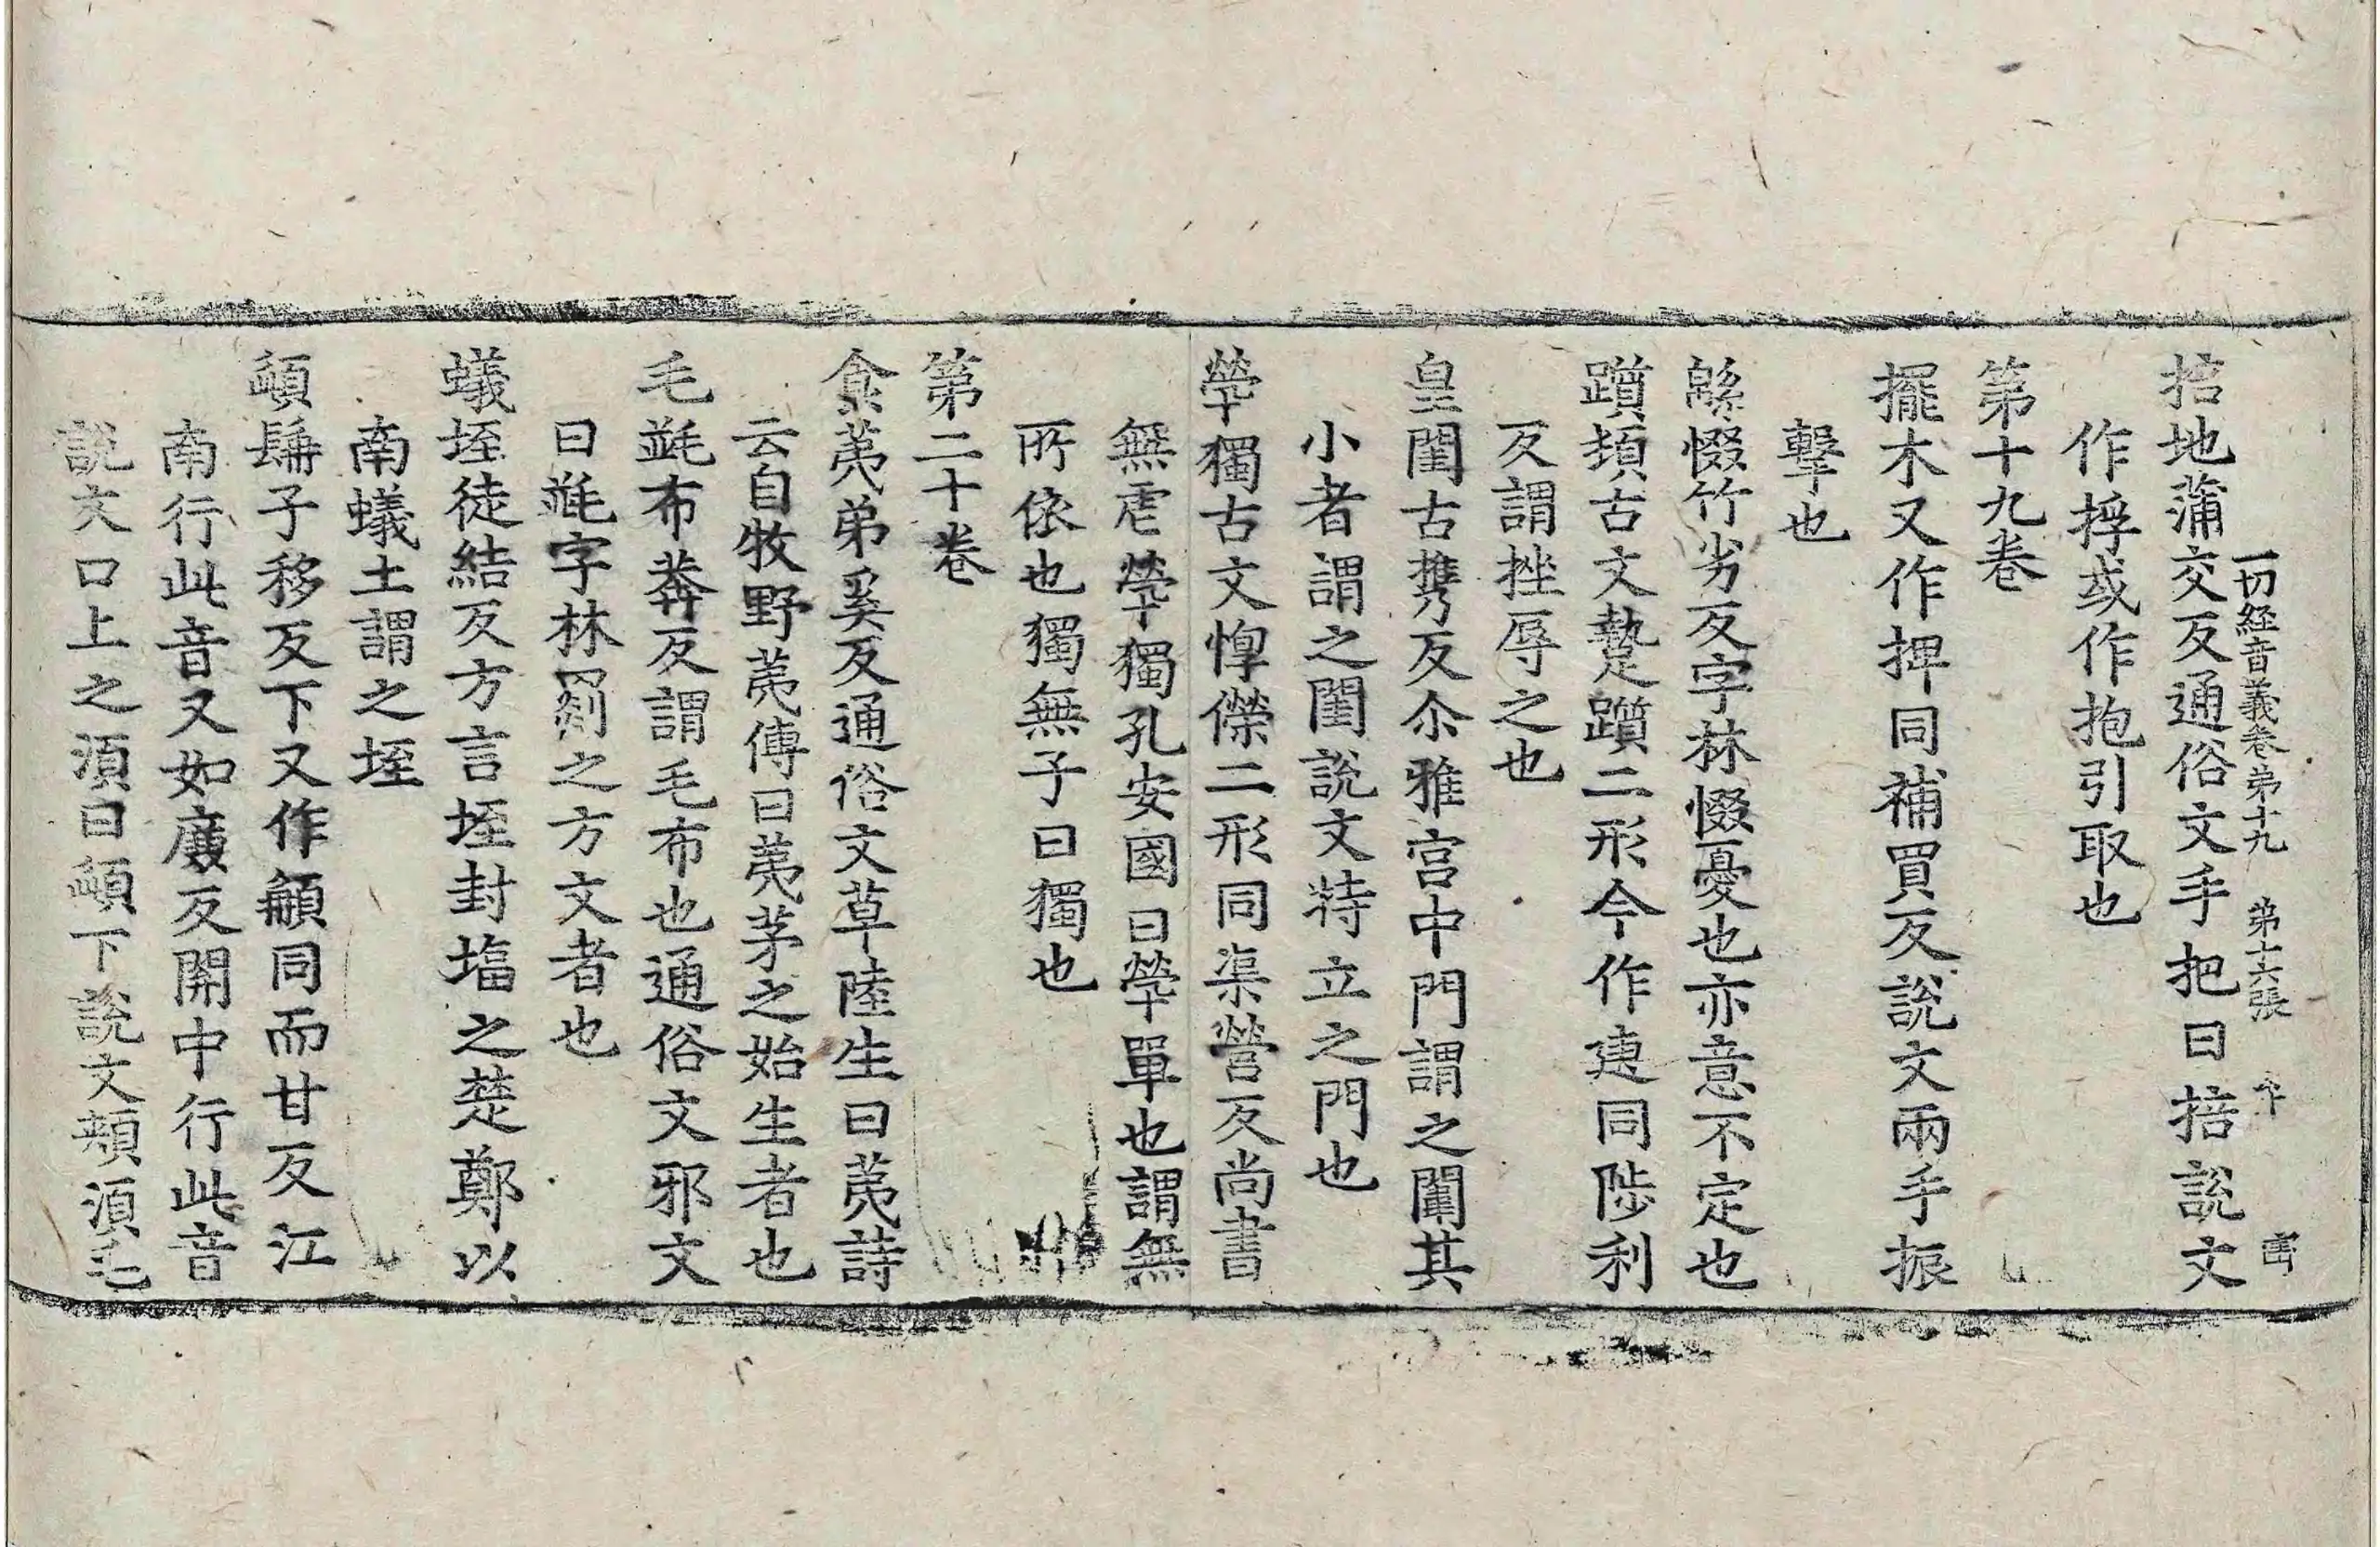 一切経音義卷苐十九 苐十六張
掊地蒲交反通俗文手把曰掊說文
作捊或作抱引取也
第十九卷
擺木又作捭同補買反說文兩手振
擊也
緜惙竹劣反字林惙憂也亦意不定也
躓頓古文𨇈躓二形今作疐同陟利
反謂挫辱之也
皇閨古攜反尒雅宫中門謂之闈其
小者謂之閨說文特立之門也
煢獨古文惸傑二形同渠營反尚書
無虐煢獨孔安國曰煢單也謂無
所依也獨無子曰獨也
第二十卷
食荑弟奚反通俗文草陸生曰荑詩
云自牧野荑傳曰荑茅之始生者也
毛㲲布莽反謂毛布也通俗文邪文
曰㲲字林罽之方文者也
蟻垤徒結反方言垤封塲之楚鄭以
南蟻土謂之垤
頿髯子移反下又作䫇同而甘反江
南行此音又如廉反開中行此音
說文口上之湏曰頿下說文頰湏毛